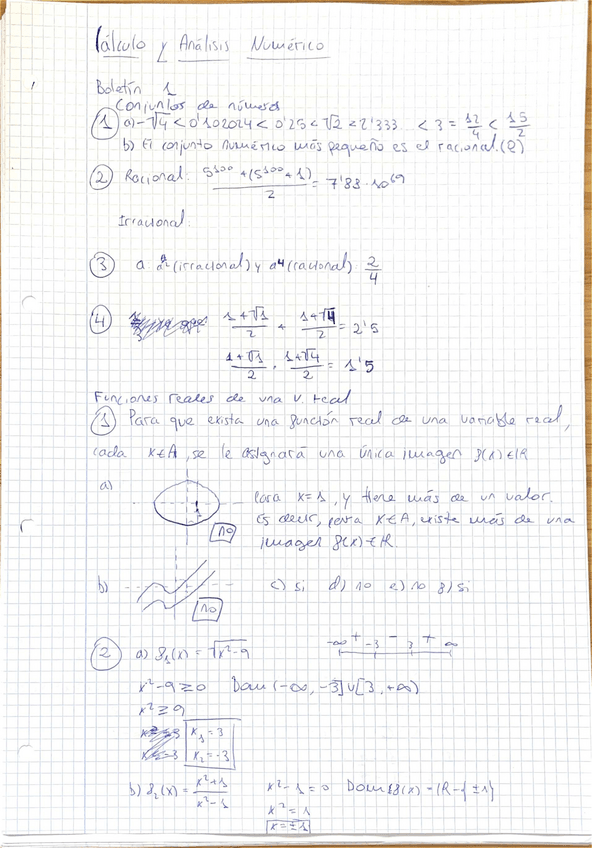 Cálculo y Análisis Numérico
Boletín 1
Conjuntos de números
① a) -√4 < 0'102024 < 0'25 < √2 < 2'333... < 3 = 12/4 < 15/2
b) El conjunto numérico más pequeño es el racional. (Q)
② Racional: (5^100 + (5^100 + 1))/2 = 7'83 · 10^69
Irracional:
③ a (irracional) y a^4 (racional) 2/4
④ (1+√1)/2 + (1+√4)/2 = 2'5
(1+√1)/2 · (1+√4)/2 = 1'5
Funciones reales de una v. real
① Para que exista una función real de una variable real,
cada x∈A, se le asignará una única imagen f(x)∈R
a)
Para x=1, y tiene más de un valor.
Es decir, para x∈A, existe más de una
imagen f(x)∈R.
no
b) c) si d) no e) no f) si
no
② a) f₁(x) = √x²-9 -∞ + -3 - 3 + ∞
x²-9≥0 Dom (-∞, -3]∪[3, +∞)
x²≥9
x₁=3
x₂=-3
b) f₂(x) = (x²+1)/(x²-1) x²-1=0 Dom f(x) = R-{±1}
x²=1
x=±1